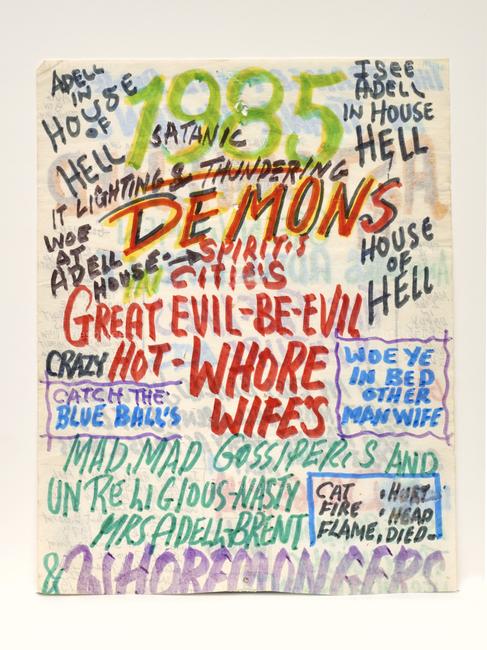 ADELL
IN
HOUSE
OF
HELL
1985
I SEE
ADELL
IN HOUSE
HELL
SATANIC
IT LIGHTING & THUNDERING
DEMONS
WOE
AT
ADELL
HOUSE.
SPIRIT'S
IN CITIE'S
HOUSE
OF
HELL
GREAT EVIL-BE-EVIL
CRAZY HOT-WHORE
WIFE'S
CATCH THE
BLUE BALL'S
WOE YE
IN BED
OTHER
MAN WIFE
MAD, MAD GOSSIPER'S AND
UNRELIGIOUS-NASTY
MRS ADELL-BRENT
CAT • HURT
FIRE • HEAD
FLAME, DIED.
& WHOREMONGERS